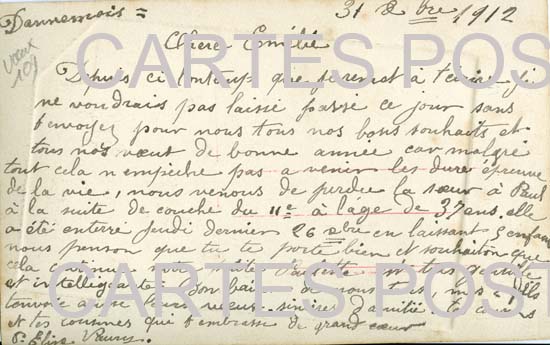 Dannemois =
31 Xbre 1912
Chère Emélie
voeux
109
Depuis ci lontemp que je remet a t'écrire j'i
ne voudrais pas laissé passé ce jour sans
t'envoyez pour nous tous nos bons souhaits et
tous nos vœut de bonne année car malgré
tout cela n'empeiche pas a venir les dure épreuve
de la vie, nous venons de perdre la sœur à Paul
à la suite de couche du 11e à l'âge de 37 ans. elle
a été enterré jeudi dernier 26 xbre en laissant 5 enfan
nous penson que tu te porte bien et souhaiton que
cela continue
et intelligente bon de nous et
voeux sincères d'amitié ta cousine
et tes cousines qui t'embrasse de grand cœur
P. Elise
CARTES POS
CARTES POS